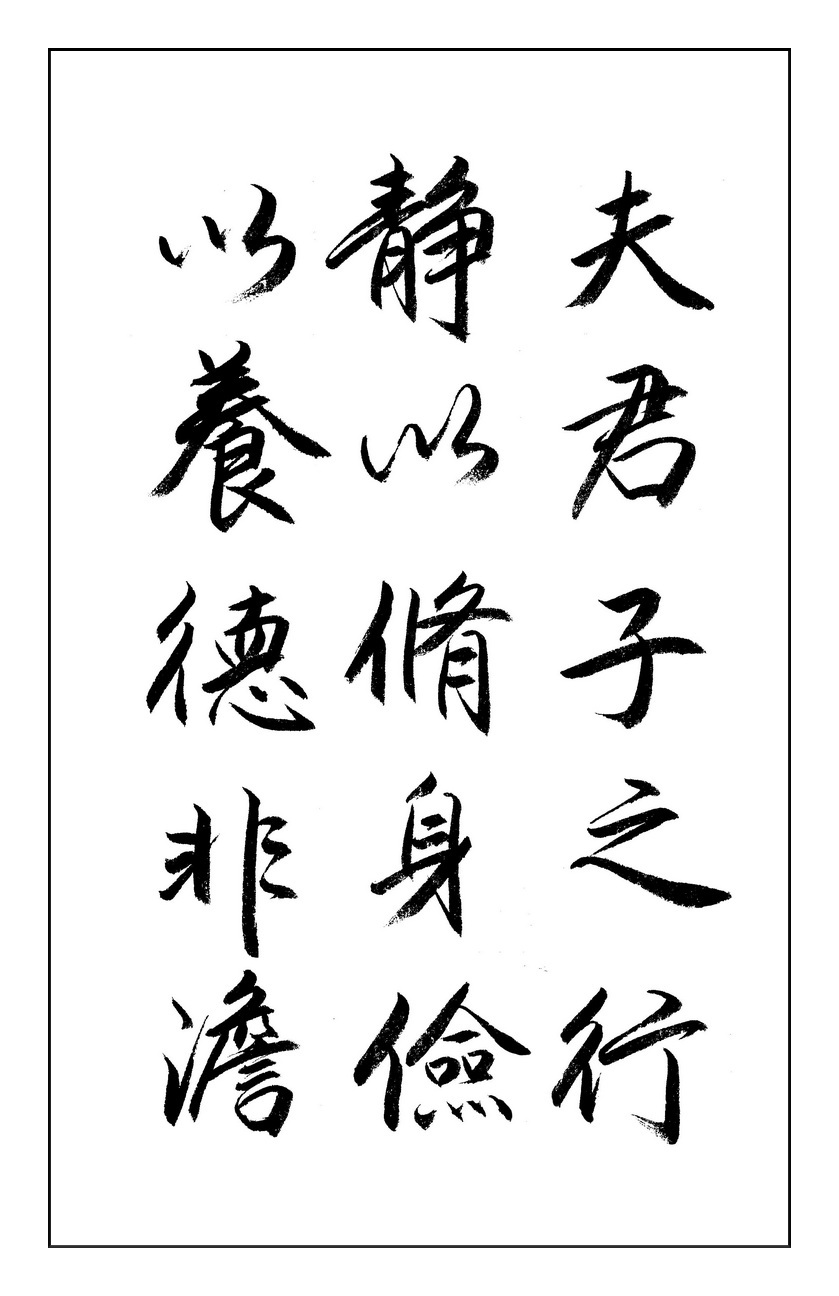 夫君子之行
靜以脩身儉
以養德非澹